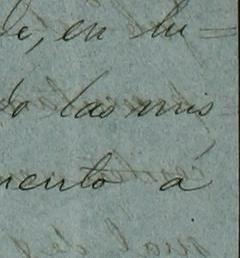 de, en su=
do las mis
mento á